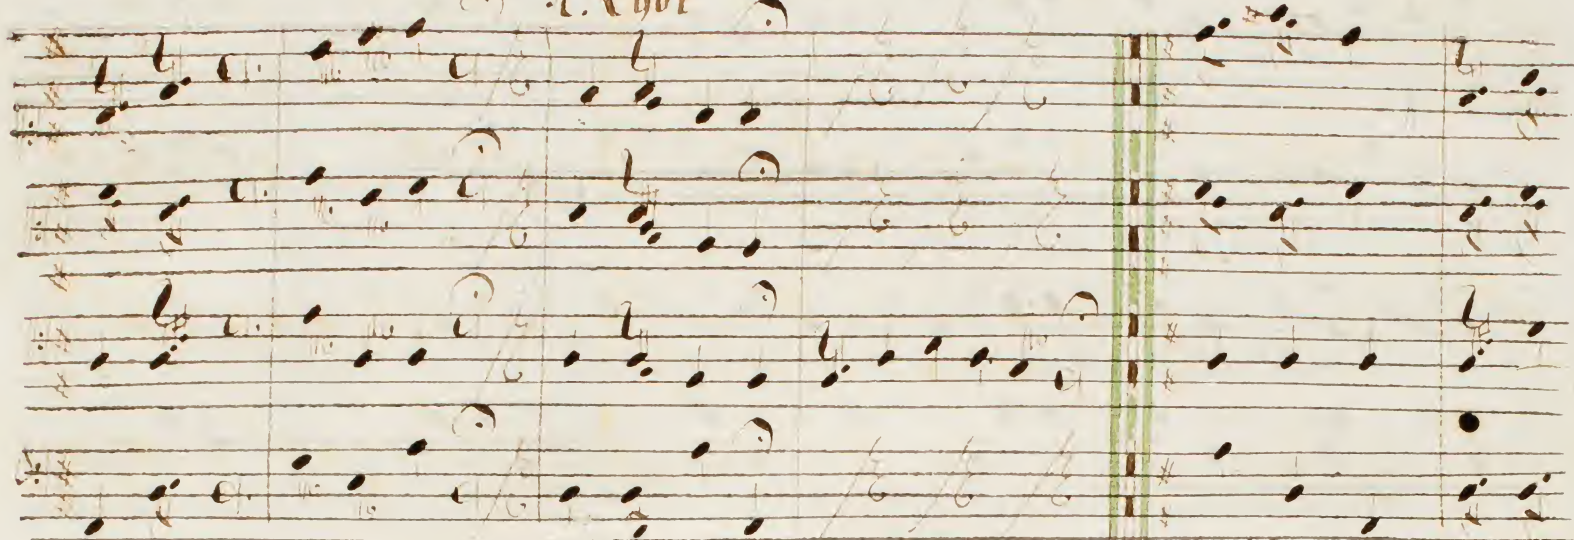 1. Chor